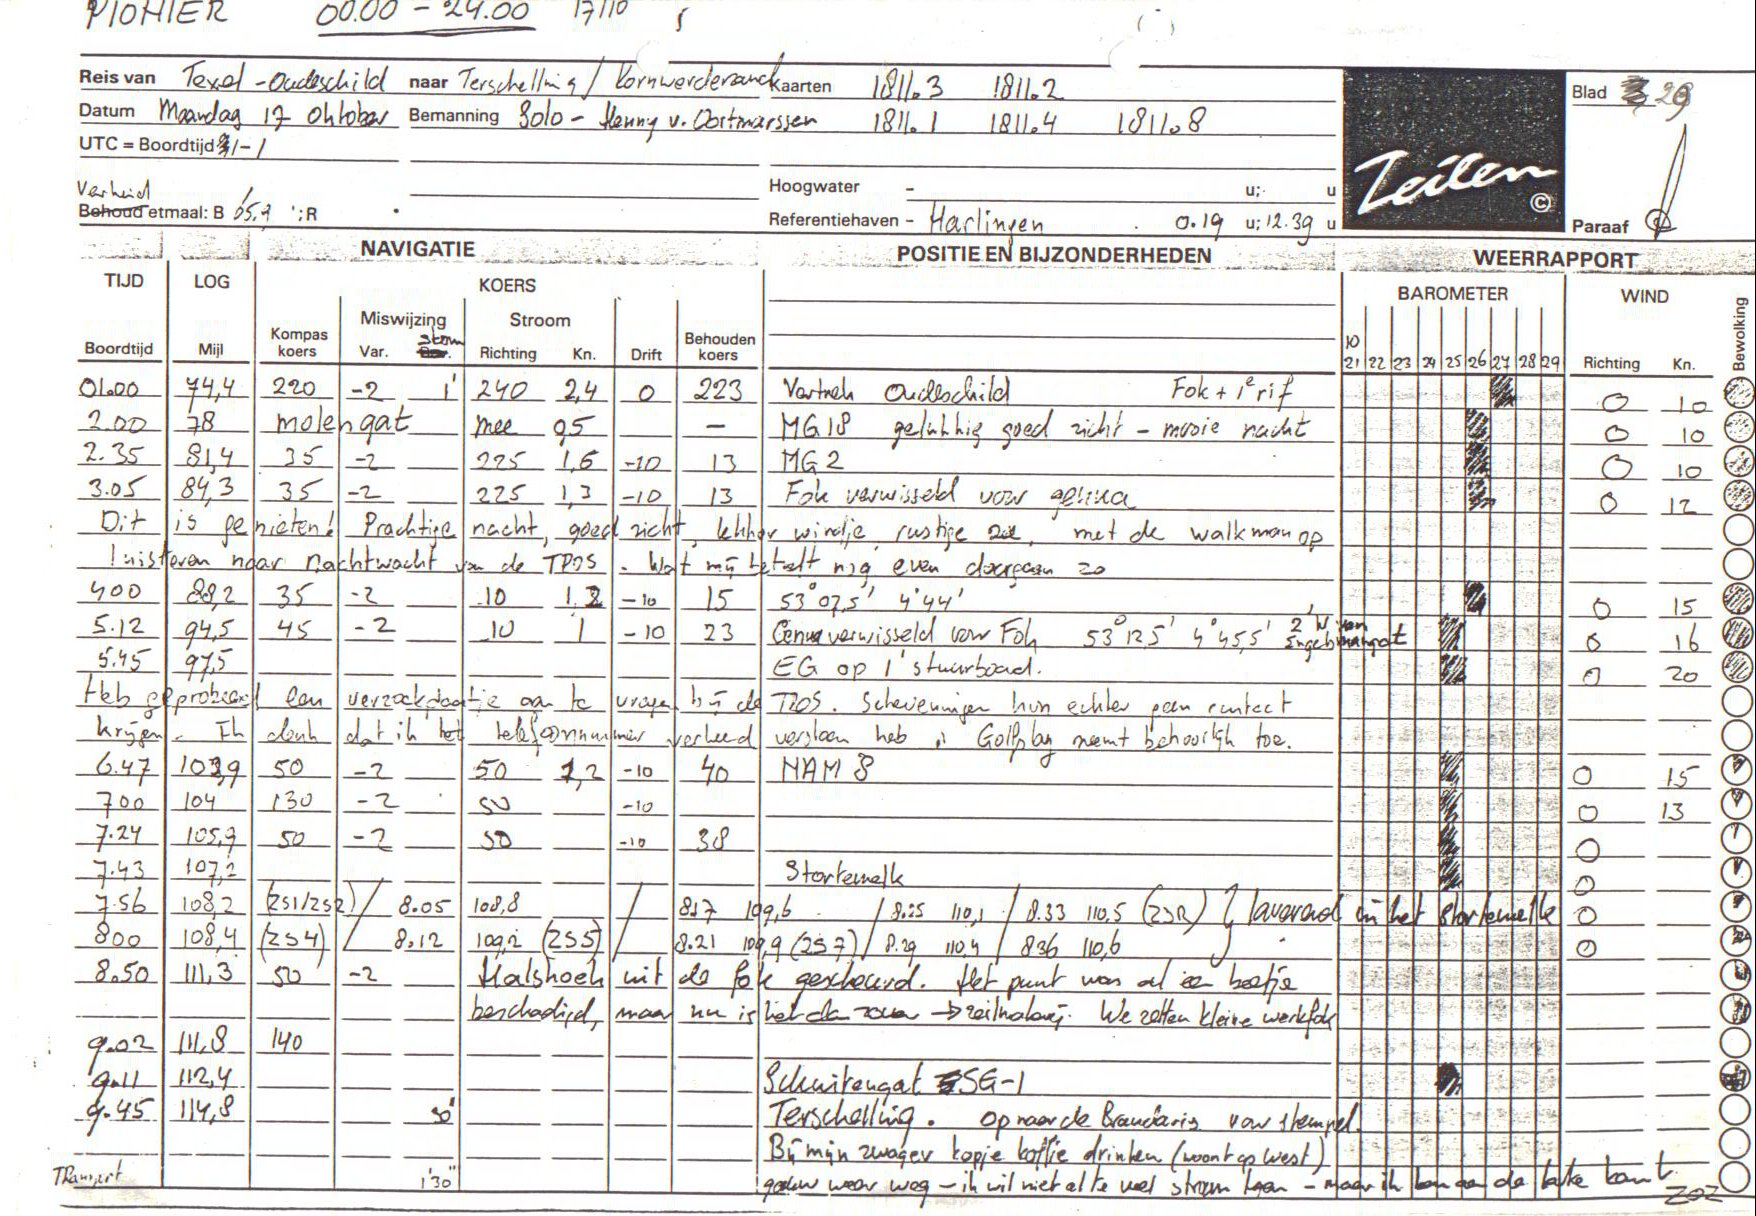 PIOHIER 00.00 - 24.00 17/10
Reis van Texel - Oudeschild naar Terschelling / Kornwerderzand Kaarten 1811.3 1811.2
Datum Maandag 17 Oktober Bemanning Solo - Henny v. Oortmarssen 1811.1 1811.4 1811.8
Blad 29
UTC = Boordtijd -1
Verheid
Hoogwater - u; u
Behoud etmaal: B 65,9 '; R
Referentiehaven - Harlingen 0.19 u; 12.39 u
Zeilen ©
Paraaf
NAVIGATIE POSITIE EN BIJZONDERHEDEN WEERRAPPORT
TIJD LOG KOERS BAROMETER WIND Bewolking
Miswijzing Stroom
Boordtijd Mijl Kompas koers Var. stom Richting Kn. Drift Behouden koers 10 21 22 23 24 25 26 27 28 29 Richting Kn.
01.00 74,4 220 -2 1' 240 2,4 0 223 Vertrek Oudeschild Fok + 1e rif O 10
2.00 78 molengat mee 0,5 - MG18 gelukkig goed zicht - mooie nacht O 10
2.35 81,4 35 -2 225 1,6 -10 13 MG2 O 10
3.05 84,3 35 -2 225 1,3 -10 13 Fok verwisseld voor genua O 12
Dit is genieten! Prachtige nacht, goed zicht, lekker windje, rustige zee, met de walkman op
luisteren naar nachtwacht van de TROS. Wat mij betreft nog even doorgaan zo
400 88,2 35 -2 10 1,2 -10 15 53°07,5' 4°44' O 15
5.12 94,5 45 -2 10 1 -10 23 Genua verwisseld voor Fok 53°12,5' 4°45,5' 2' W van Engelsmangat O 16
5.45 97,5 EG op 1' stuurboord. O 20
Heb geprobeerd een verzoekplaatje aan te vragen bij de TROS. Scheveningen kon echter geen contact
krijgen. Ik denk dat ik het telefoonnummer verkeerd verstaan heb. Golfslag neemt behoorlijk toe.
6.47 103,9 50 -2 50 1,2 -10 40 NAM 8 O 15
700 104 130 -2 50 -10 O 13
7.24 105,9 50 -2 50 -10 38 O
7.43 107,2 Stortemelk O
7.56 108,2 (ZS1/ZS2) / 8.05 108,8 / 8.17 109,6 / 8.25 110,1 / 8.33 110,5 (ZS12) } laverend in het Stortemelk O
800 108,4 (ZS4) / 8.12 109,2 (ZS5) / 8.21 109,9 (ZS7) / 8.29 110,4 / 8.36 110,6 O
8.50 111,3 50 -2 Halshoek uit de fok gescheurd. Het punt was al een beetje
beschadigd, maar nu is het → zeilmakerij. We zetten kleine werkfok
9.02 111,8 140
9.11 112,4 Schuitengat SG-1
9.45 114,8 30' Terschelling. Op naar de Brandaris voor stempel.
Bij mijn zwager kopje koffie drinken (woont op West)
Transport 1'30" gauw weer weg - ik wil niet al te veel stroom tegen - maar ik ben aan de late kant
ZOZ